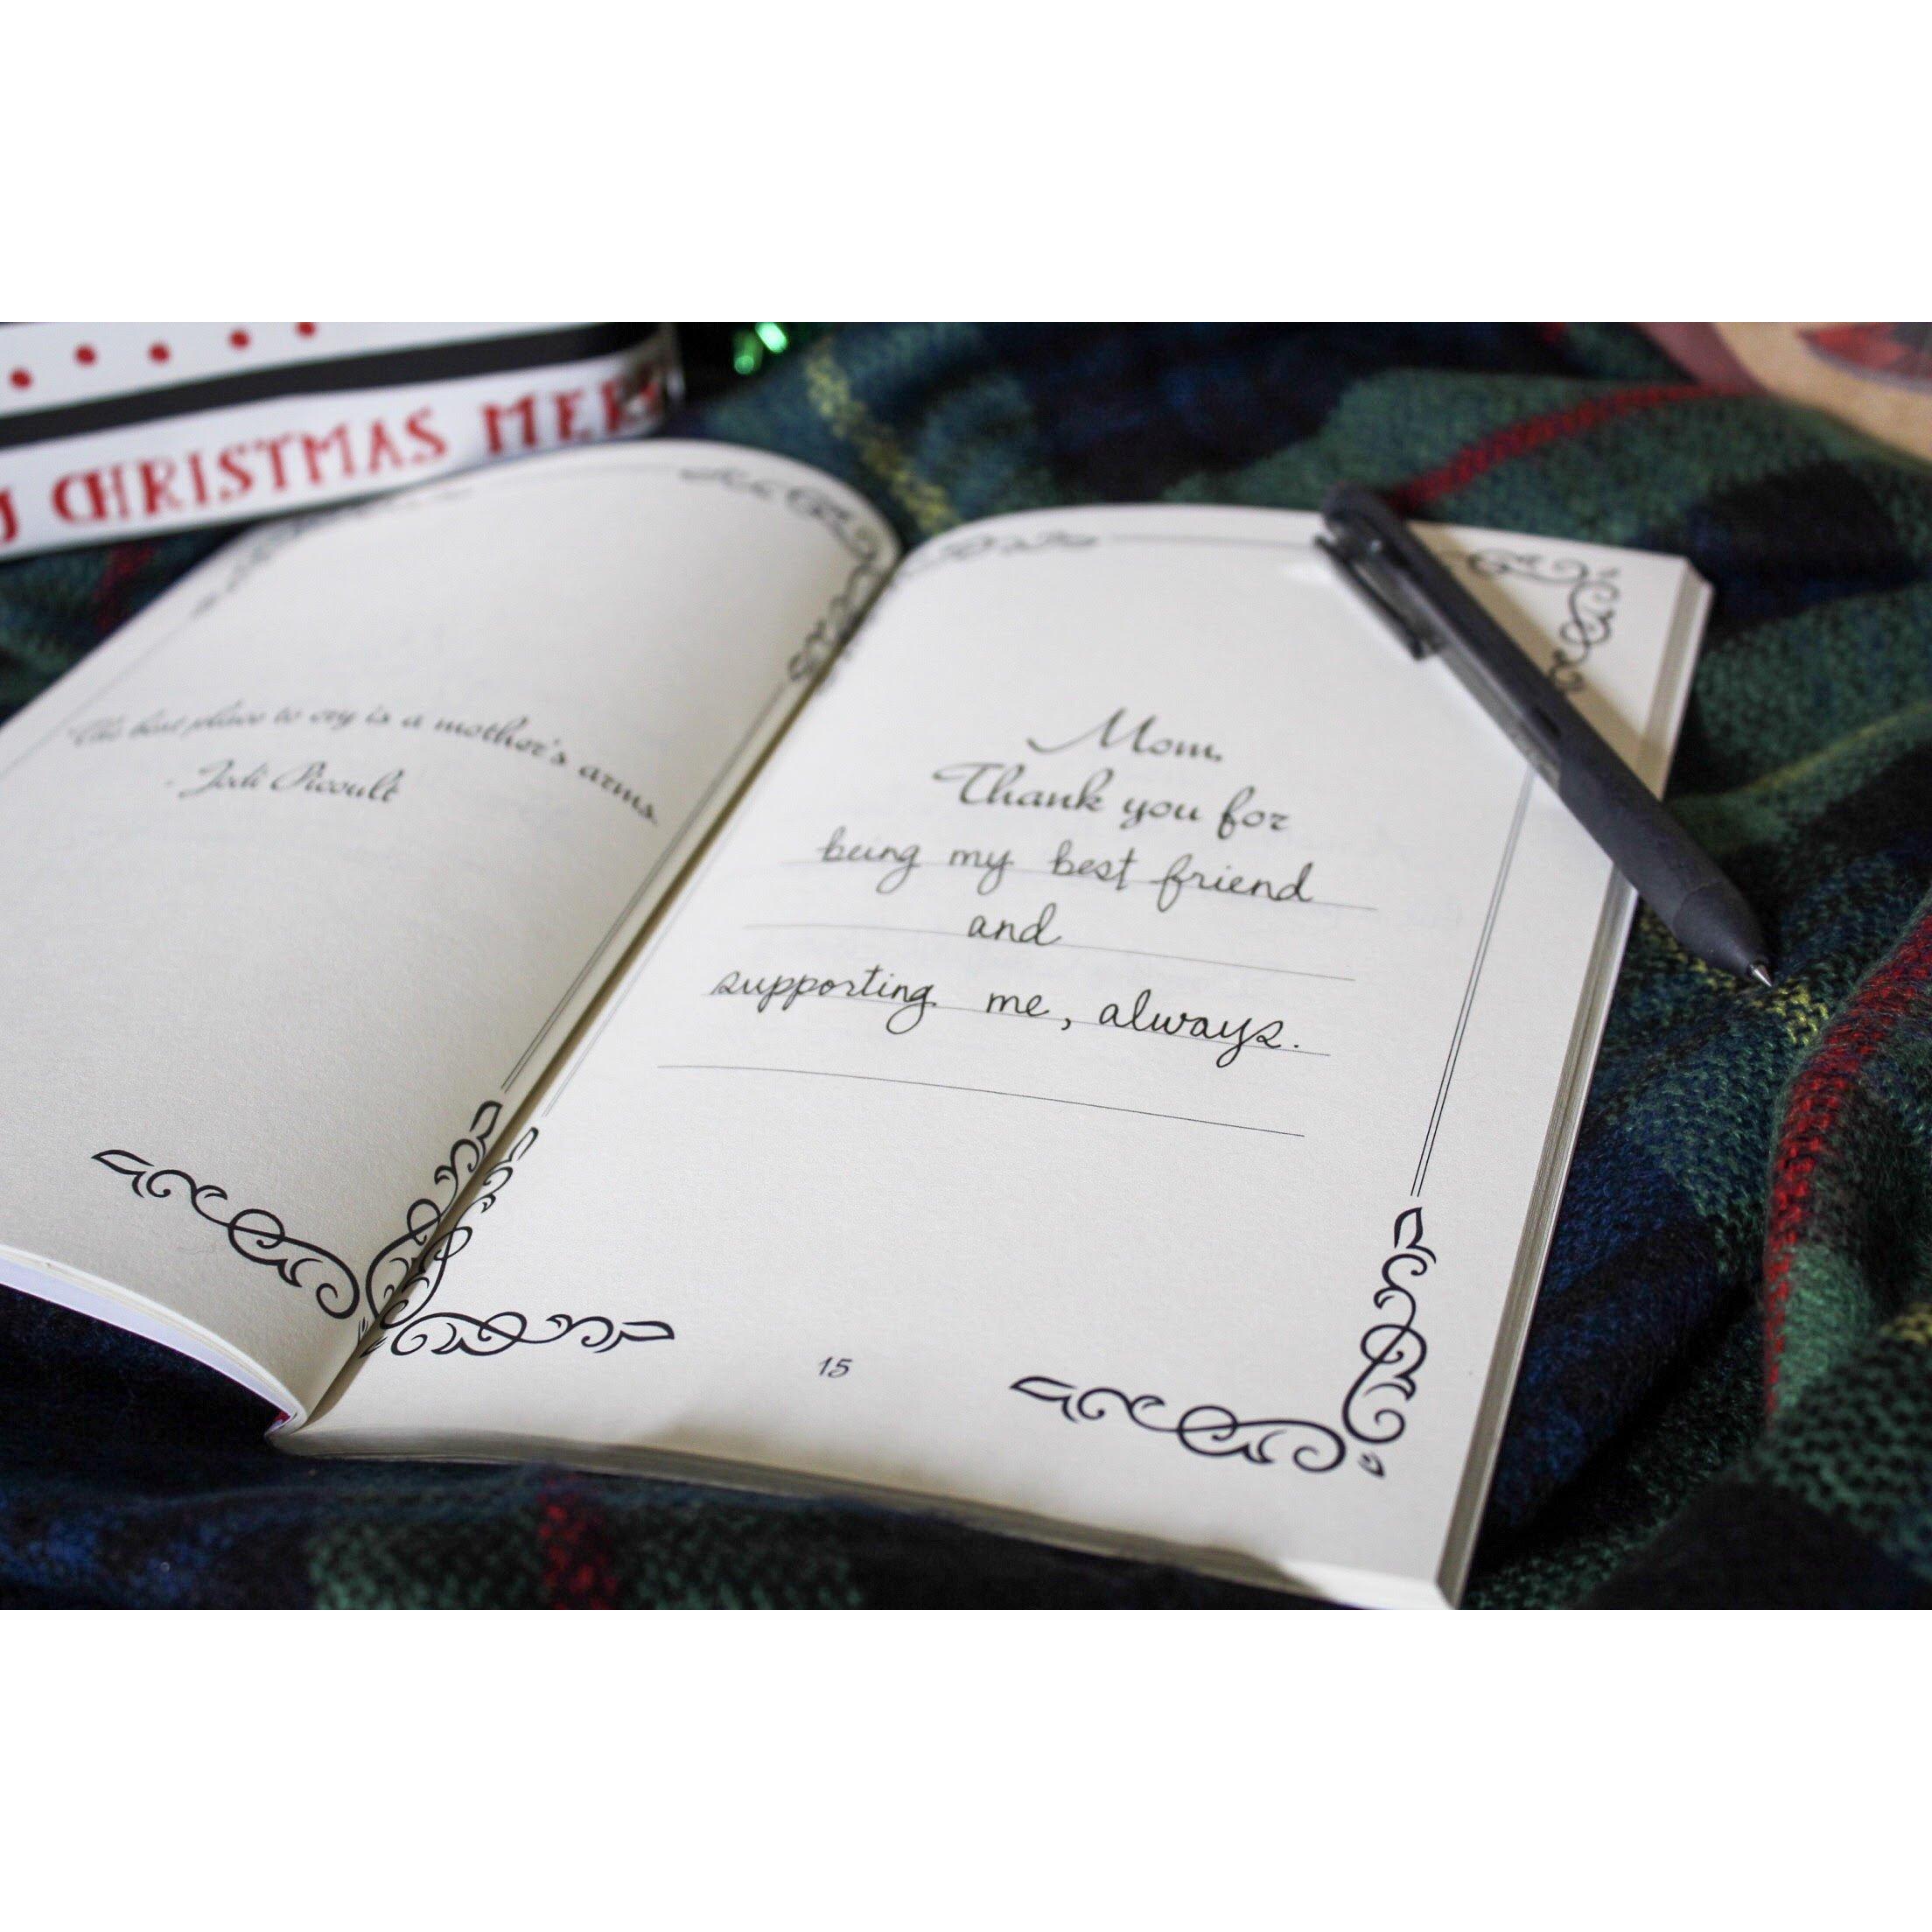 CHRISTMAS
"The best place to cry is a mother's arms
- Jodi Picoult
Mom,
Thank you for
being my best friend
and
supporting me, always.
15